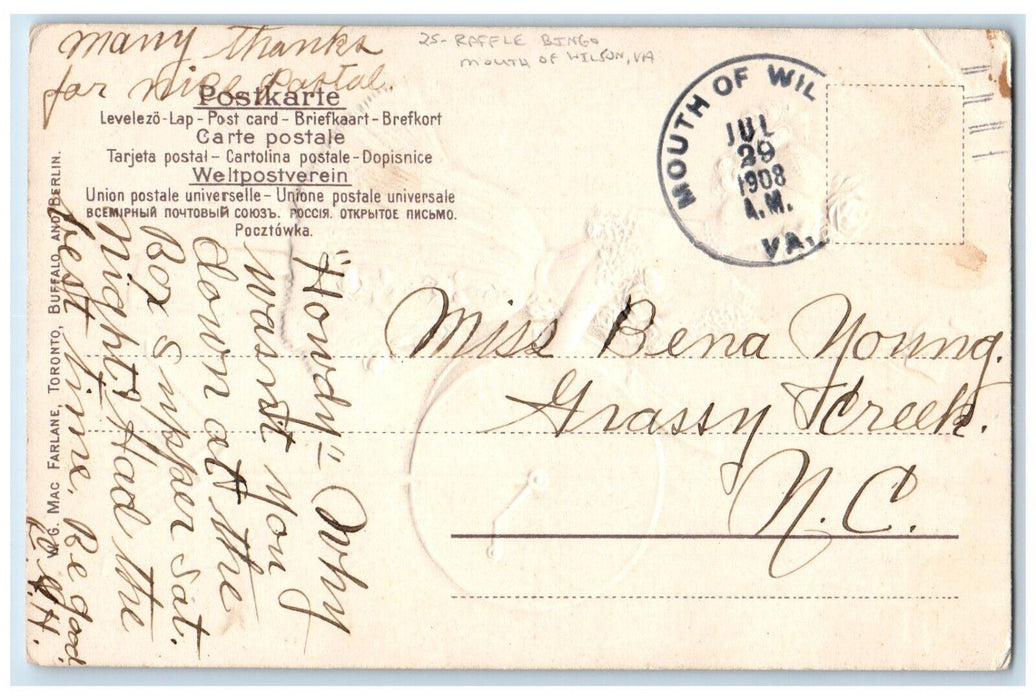 many thanks
for nice Postal.
25- RAFFLE BINGO
MOUTH OF WILSON, VA
MOUTH OF WIL
JUL
29
1908
A.M.
VA.
Postkarte
Levelező-Lap - Post card - Briefkaart - Brefkort
Carte postale
Tarjeta postal - Cartolina postale - Dopisnice
Weltpostverein
Union postale universelle - Unione postale universale
ВСЕМІРНЫЙ ПОЧТОВЫЙ СОЮЗЪ. РОССІЯ. ОТКРЫТОЕ ПИСЬМО.
Pocztówka.
"Howdy" - Why
wasnt you
down at the
Box Supper Sat.
night. Had the
best time. Be good.
W. G. MAC FARLANE, TORONTO, BUFFALO AND BERLIN.
Miss Bena Young.
Grassy Creek.
N.C.